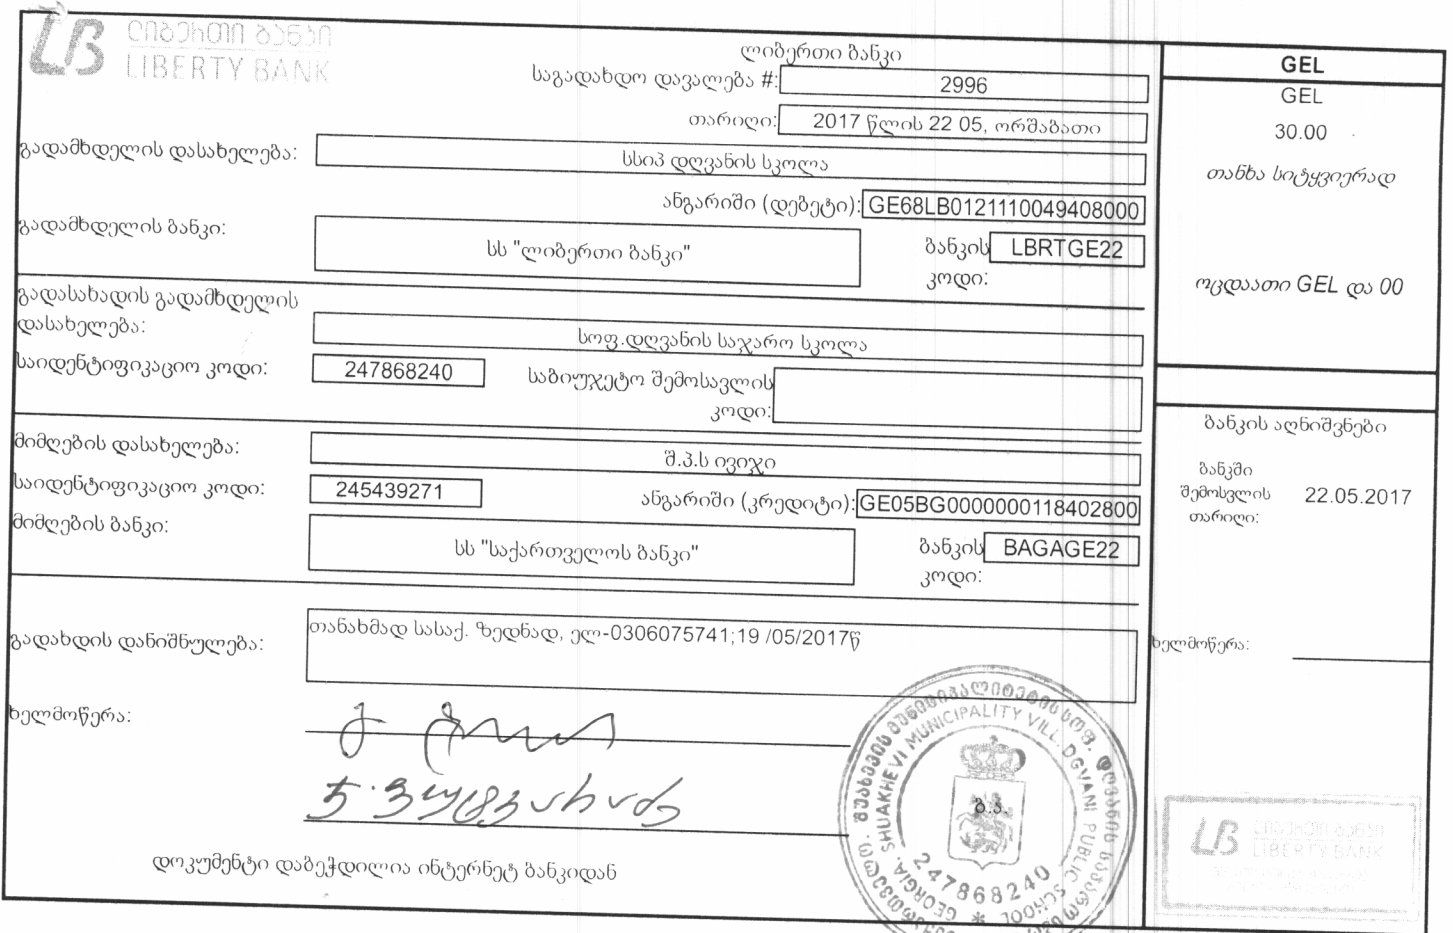 ლიბერთი ბანკი
LIBERTY BANK
ლიბერთი ბანკი
საგადახდო დავალება #: 2996
თარიღი: 2017 წლის 22 05, ორშაბათი
გადამხდელის დასახელება: სსიპ დღვანის სკოლა
ანგარიში (დებეტი): GE68LB0121110049408000
გადამხდელის ბანკი: სს "ლიბერთი ბანკი" ბანკის კოდი: LBRTGE22
გადასახადის გადამხდელის
დასახელება: სოფ.დღვანის საჯარო სკოლა
საიდენტიფიკაციო კოდი: 247868240 საბიუჯეტო შემოსავლის
კოდი:
მიმღების დასახელება: შ.პ.ს ივიჯი
საიდენტიფიკაციო კოდი: 245439271 ანგარიში (კრედიტი): GE05BG0000000118402800
მიმღების ბანკი: სს "საქართველოს ბანკი" ბანკის კოდი: BAGAGE22
გადახდის დანიშნულება: თანახმად სასაქ. ზედნად, ელ-0306075741;19 /05/2017წ
ხელმოწერა:
დოკუმენტი დაბეჭდილია ინტერნეტ ბანკიდან
GEL
GEL
30.00
თანხა სიტყვიერად
ოცდაათი GEL და 00
ბანკის აღნიშვნები
ბანკში
შემოსვლის 22.05.2017
თარიღი:
ხელმოწერა:
SHUAKHEVI MUNICIPALITY VILL. DGVANI PUBLIC SCHOOL
GEORGIA.
247868240
ბ.ა.
LIBERTY BANK